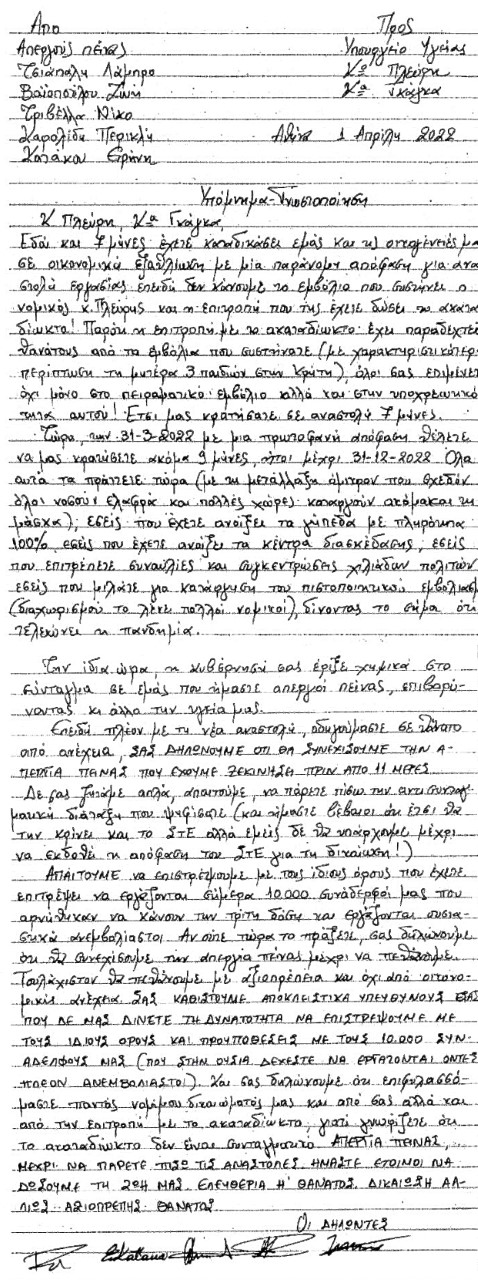 Από Προς
Απεργούς πείνας Υπουργείο Υγείας
Τσιάπαλη Λάμπρο Κο Πλεύρη
Βαϊοπούλου Ζωή Κα Γκάγκα
Τριβέλλα Νίκο
Καρολίδη Περικλή Αθήνα 1 Απρίλη 2022
Κατάκου Ειρήνη
Υπόμνημα-Γνωστοποίηση
Κ Πλεύρη, Κα Γκάγκα,
Εδώ και 7 μήνες έχετε καταδικάσει εμάς και τις οικογένειές μας
σε οικονομική εξαθλίωση με μία παράνομη απόφαση για ανα
στολή εργασίας επειδή δεν κάνουμε το εμβόλιο που συστήνει ο
νομικός κ. Πλεύρης και η επιτροπή που της έχετε δώσει το ακατα
δίωκτο! Παρότι η επιτροπή με το ακαταδίωκτο έχει παραδεχτεί
θανάτους από τα εμβόλια που συστήνατε (με χαρακτηριστικότερη
περίπτωση τη μητέρα 3 παιδιών στην Κρήτη), όλοι σας επιμένετε
όχι μόνο στο πειραματικό εμβόλιο αλλά και στην υποχρεωτικό
τητα αυτού! Έτσι μας κρατήσατε σε αναστολή 7 μήνες.
Τώρα, την 31-3-2022 με μια πρωτοφανή απόφαση θέλετε
να μας κρατήσετε ακόμα 9 μήνες, ήτοι μέχρι 31-12-2022 Όλα
αυτά τα πράττετε τώρα (με τη μετάλλαξη όμικρον που σχεδόν
όλοι νοσούν ελαφρά και πολλές χώρες καταργούν ακόμα και τη
μάσκα), εσείς που έχετε ανοίξει τα γήπεδα με πληρότητα
100% εσείς που έχετε ανοίξει τα κέντρα διασκέδασης, εσείς
που επιτρέπετε συναυλίες και συγκεντρώσεις χιλιάδων πολιτών
εσείς που μιλάτε για κατάργηση του πιστοποιητικού εμβολιασμού
(διαχωρισμού το λένε πολλοί νομικοί), δίνοντας το σήμα ότι
τελειώνει η πανδημία.
Την ίδια ώρα, η κυβέρνησή σας έριξε χημικά στο
σύνταγμα σε εμάς που ήμαστε απεργοί πείνας, επιβαρύ-
νοντας κι άλλο την υγεία μας.
Επειδή πλέον με τη νέα αναστολή, οδηγούμαστε σε θάνατο
από ανέχεια, ΣΑΣ ΔΗΛΩΝΟΥΜΕ ΟΤΙ ΘΑ ΣΥΝΕΧΙΣΟΥΜΕ ΤΗΝ Α-
ΠΕΡΓΙΑ ΠΕΙΝΑΣ ΠΟΥ ΕΧΟΥΜΕ ΞΕΚΙΝΗΣΕΙ ΠΡΙΝ ΑΠΟ 11 ΜΕΡΕΣ
Δε σας ζητάμε απλά, απαιτούμε, να πάρετε πίσω την αντισυνταγ-
ματική διάταξη που ψηφίσατε (και ήμαστε βέβαιοι ότι έτσι θα
την κρίνει και το ΣτΕ αλλά εμείς δε θα υπάρχουμε μέχρι
να εκδοθεί η απόφαση του ΣτΕ για τη δικαίωση!)
ΑΠΑΙΤΟΥΜΕ να επιστρέψουμε με τους ίδιους όρους που έχετε
επιτρέψει να εργάζονται σήμερα 10.000 συνάδερφοί μας που
αρνήθηκαν να κάνουν την τρίτη δόση και εργάζονται ουσια-
στικά ανεμβολίαστοι Αν ούτε τώρα το πράξετε, σας δηλώνουμε
ότι θα συνεχίσουμε την απεργία πείνας μέχρι να πεθάνουμε.
Τουλάχιστον θα πεθάνουμε με αξιοπρέπεια και όχι από οικονο-
μικής ανέχεια ΣΑΣ ΚΑΘΙΣΤΟΥΜΕ ΑΠΟΚΛΕΙΣΤΙΚΑ ΥΠΕΥΘΥΝΟΥΣ ΕΣΑΣ
ΠΟΥ ΔΕ ΜΑΣ ΔΙΝΕΤΕ ΤΗ ΔΥΝΑΤΟΤΗΤΑ ΝΑ ΕΠΙΣΤΡΕΨΟΥΜΕ ΜΕ
ΤΟΥΣ ΙΔΙΟΥΣ ΟΡΟΥΣ ΚΑΙ ΠΡΟΥΠΟΘΕΣΕΙΣ ΜΕ ΤΟΥΣ 10.000 ΣΥΝ-
ΑΔΕΛΦΟΥΣ ΜΑΣ (ΠΟΥ ΣΤΗΝ ΟΥΣΙΑ ΔΕΧΕΣΤΕ ΝΑ ΕΡΓΑΖΟΝΤΑΙ ΟΝΤΕΣ
ΠΛΕΟΝ ΑΝΕΜΒΟΛΙΑΣΤΟΙ). Και σας δηλώνουμε ότι επιφυλασσό-
μαστε παντός νομίμου δικαιώματός μας και από σας αλλά και
από την επιτροπή με το ακαταδίωκτο, γιατί γνωρίζετε ότι
το ακαταδίωκτο δεν είναι συνταγματικό ΑΠΕΡΓΙΑ ΠΕΙΝΑΣ,
ΜΕΧΡΙ ΝΑ ΠΑΡΕΤΕ ΠΙΣΩ ΤΙΣ ΑΝΑΣΤΟΛΕΣ ΗΜΑΣΤΕ ΕΤΟΙΜΟΙ ΝΑ
ΔΩΣΟΥΜΕ ΤΗ ΖΩΗ ΜΑΣ ΕΛΕΥΘΕΡΙΑ Η' ΘΑΝΑΤΟΣ. ΔΙΚΑΙΩΣΗ ΑΛ-
ΛΙΩΣ ΑΞΙΟΠΡΕΠΗΣ ΘΑΝΑΤΟΣ
ΟΙ ΔΗΛΩΝΤΕΣ